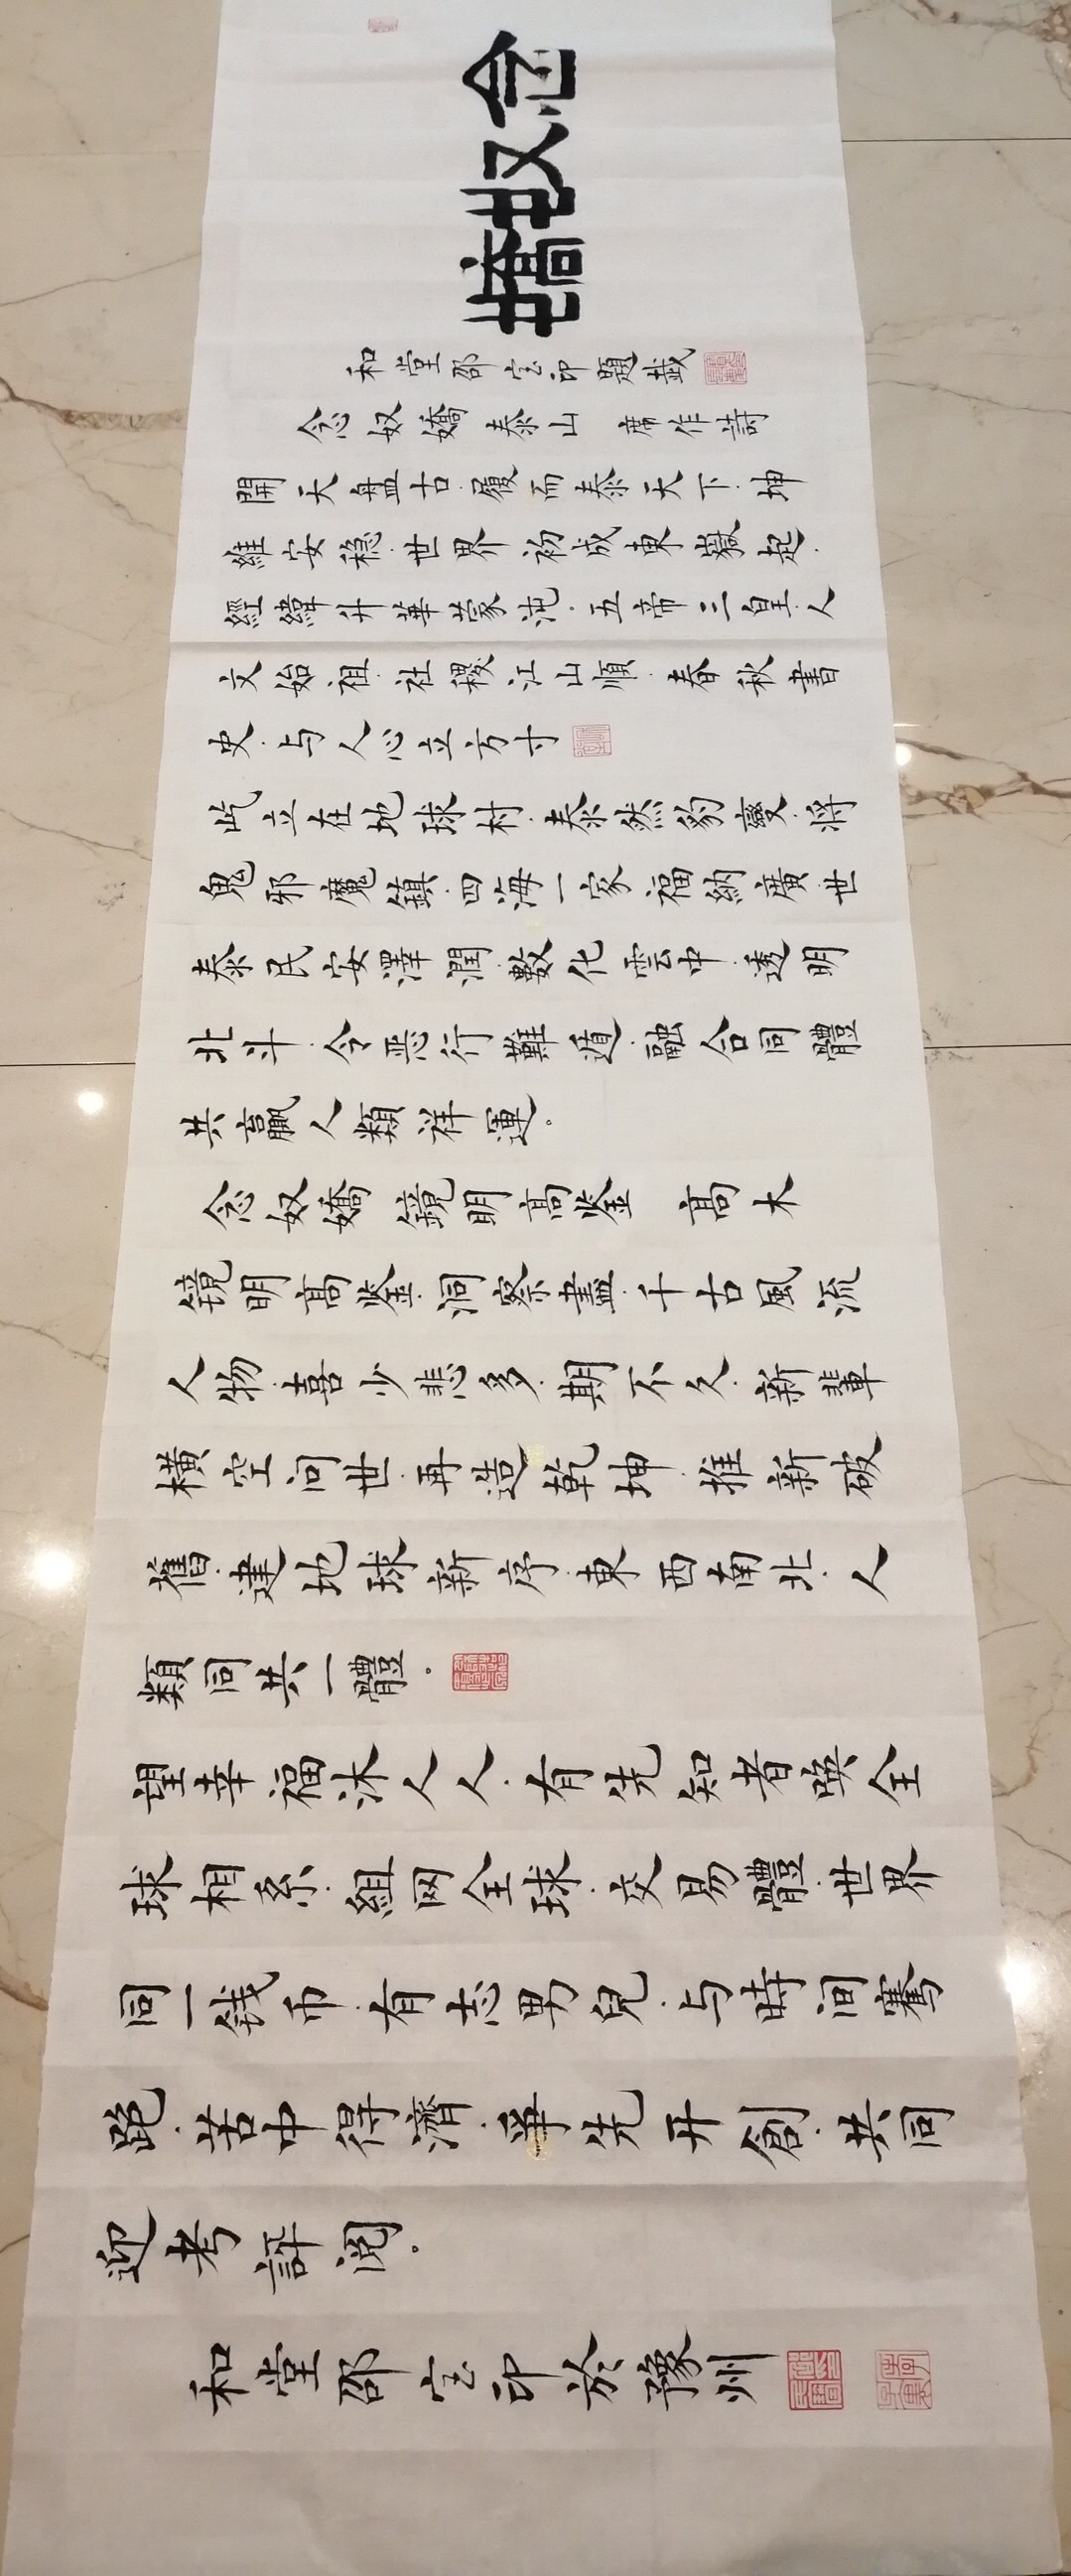 念奴嬌
和堂邵宝印題 
念奴嬌泰山 席作詩
開天盘古.履而泰天下.坤
維安稳.世界初成東嶽起.
經緯升華蒙沌.五帝三皇.人
文始祖.社稷江山順.春秋書
史.与人心立方寸
屹立在地球村.泰然豹變.将
鬼邪魔鎮.四海一家福納廣世
泰民安澤潤.數化雲中.透明
北斗.令恶行難遁.融合同體
共贏人類祥運。
念奴嬌 鏡明高鉴 高木
镜明高鉴.洞察盡.千古風流
人物.喜少悲多.期不久.新輩
横空问世.再造乾坤.推新破
舊.建地球新序.東西南北.人
類同共一體。
望幸福沐人人.有先知者唤全
球相系.組网全球.交易體.世界
同一钱币.有志男兒.与時间騫
跑.苦中得濟.爭先开創.共同
迎考評阅。
和堂邵宝印於豫州